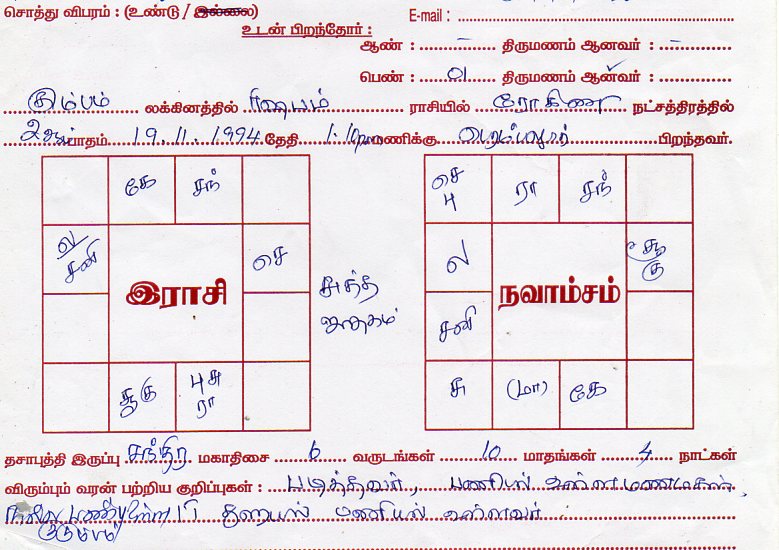 சொத்து விபரம் : (உண்டு / இல்லை)
E-mail :
உடன் பிறந்தோர் :
ஆண் : – திருமணம் ஆனவர் : –
பெண் : 01 திருமணம் ஆனவர் :
கும்பம் லக்கினத்தில் ரிஷபம் ராசியில் ரோகிணி நட்சத்திரத்தில்
2ஆம் பாதம் 19.11.1994 தேதி 1.10 மணிக்கு பெரம்பலூர் பிறந்தவர்.
கே சந்
ல சனி
செ
இராசி
சூ குரு
பு சு ரா
சுத்த ஜாதகம்
செ பு
ரா சந்
ல
சூ கு
நவாம்சம்
சனி
சு (மா) கே
தசாபுத்தி இருப்பு சந்திர மகாதிசை 6 வருடங்கள் 10 மாதங்கள் 4 நாட்கள்
விரும்பும் வரன் பற்றிய குறிப்புகள் : படித்தவர், பணியில் உள்ள மணமகன்,
நல்ல குடும்பம் பணியில் உள்ளவர்